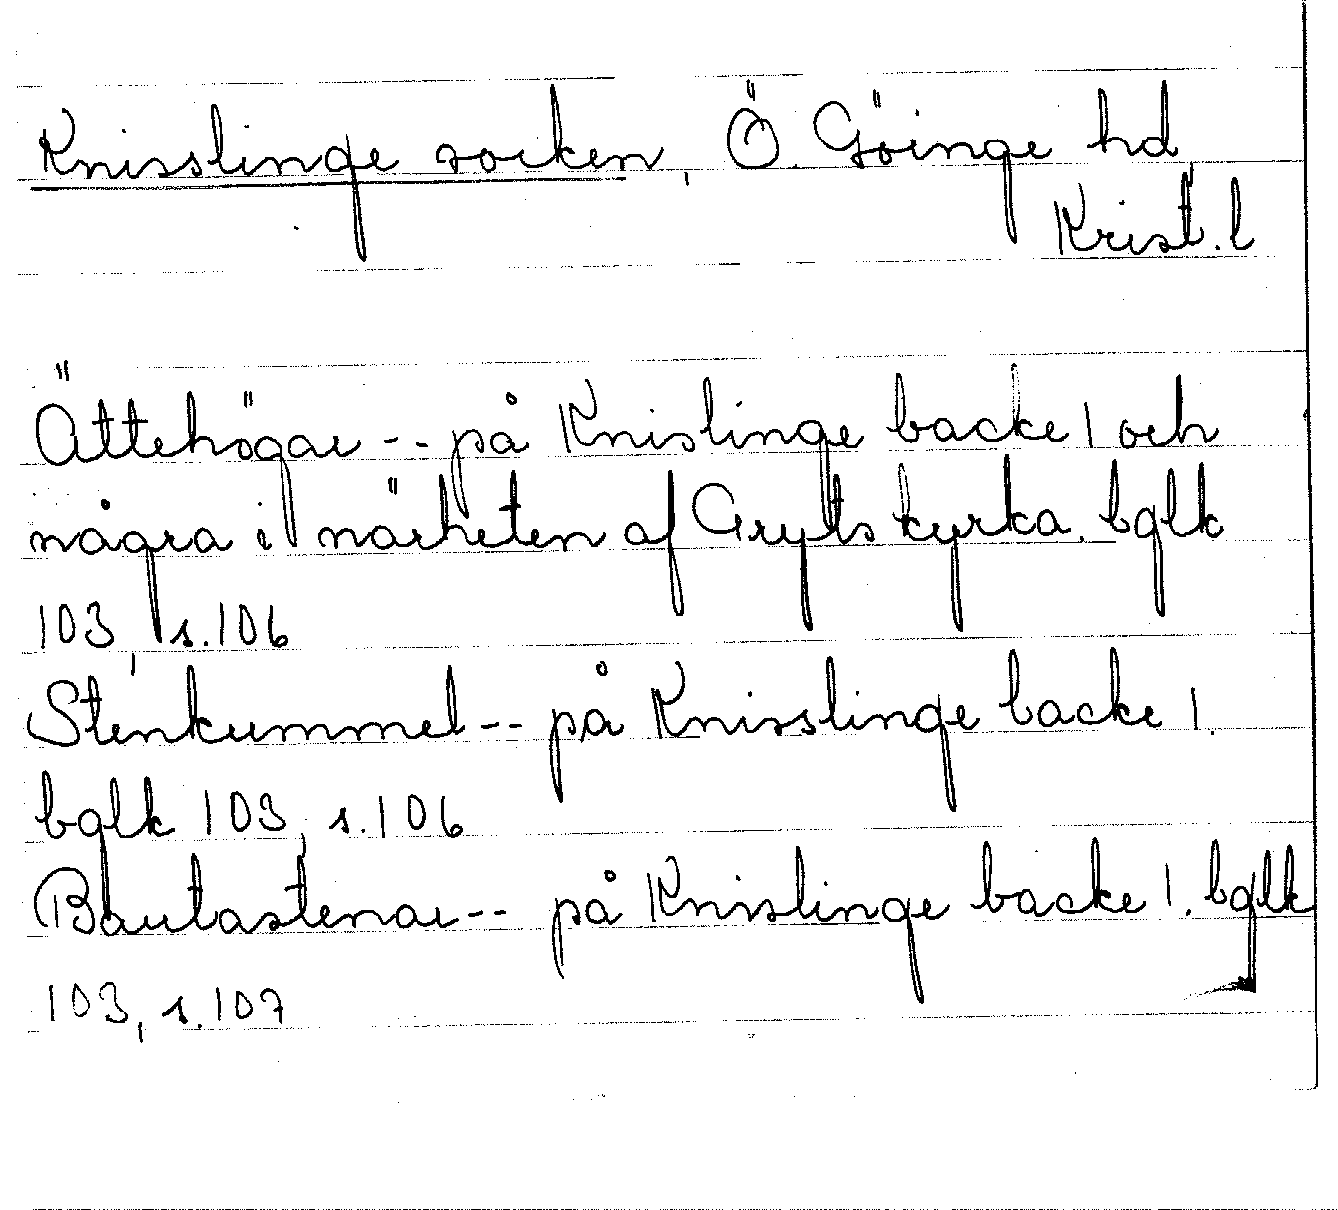 Knisslinge socken, Ö. Göinge hd,
Krist. l
Ättehögar -- på Knislinge backe l och
några i närheten af Gryts kyrka. bglk
103, s. 106
Stenkummel -- på Knisslinge backe l.
bglk 103, s. 106
Bautastenar -- på Knislinge backe l. bglk
103, s. 107